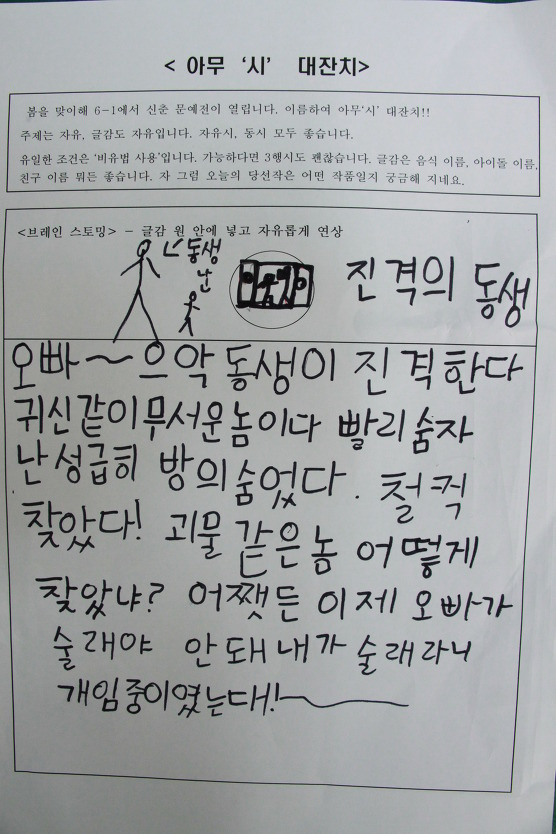 < 아무 ‘시’ 대잔치>
봄을 맞이해 6-1에서 신춘 문예전이 열립니다. 이름하여 아무‘시’ 대잔치!!
주제는 자유, 글감도 자유입니다. 자유시, 동시 모두 좋습니다.
유일한 조건은 ‘비유법 사용’입니다. 가능하다면 3행시도 괜찮습니다. 글감은 음식 이름, 아이돌 이름,
친구 이름 뭐든 좋습니다. 자 그럼 오늘의 당선작은 어떤 작품일지 궁금해 지네요.
<브레인 스토밍> - 글감 원 안에 넣고 자유롭게 연상
동생
난
진격의 동생
오빠~으악 동생이 진격한다
귀신같이 무서운놈이다 빨리 숨자
난 성급히 방의 숨었다. 철컥
찾았다! 괴물 같은 놈 어떻게
찾았냐? 어쨋든 이제 오빠가
술래야 안돼 내가 술래라니
개임중이였는대!~